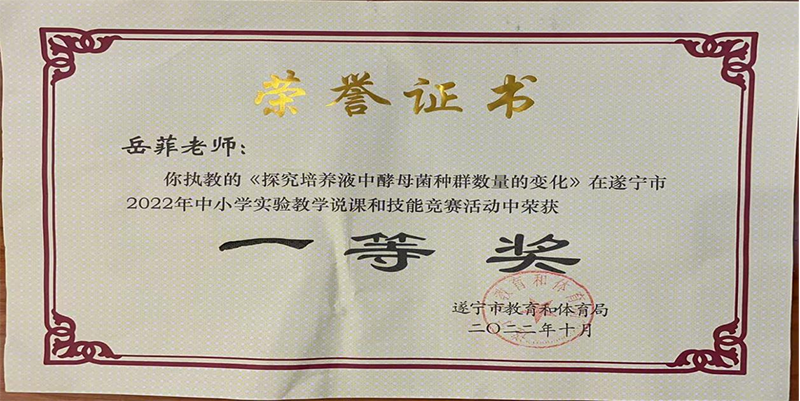 荣誉证书
岳菲老师：
你执教的《探究培养液中酵母菌种群数量的变化》在遂宁市
2022年中小学实验教学说课和技能竞赛活动中荣获
一等奖
遂宁市教育和体育局
二〇二二年十月